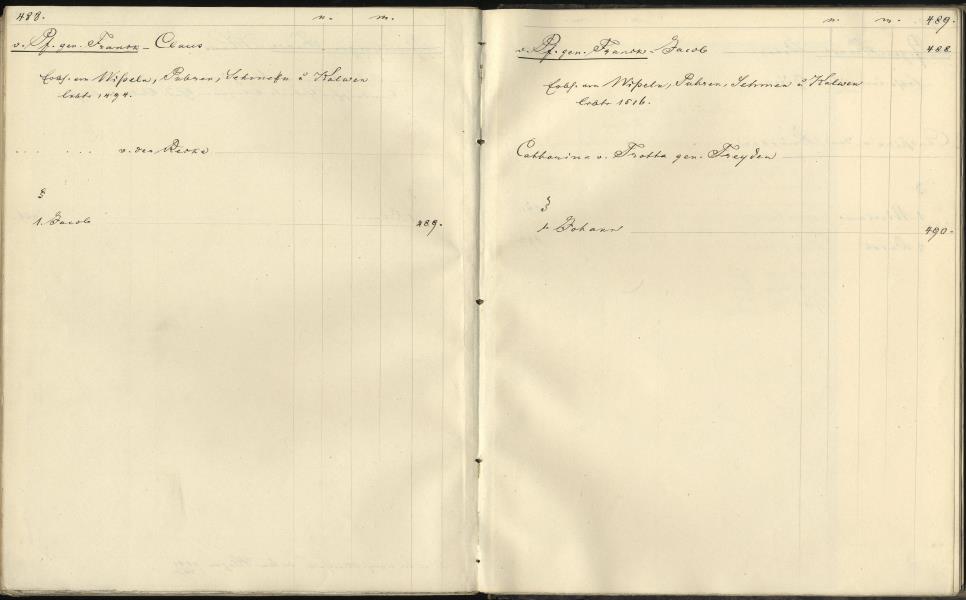 488. n. m.
v. Pf. gen. Franck - Claus
Erbh. von Wißeln, Puhren, Schmetten u Kalwen
lebte 1494.
. . . . . . v. der Recke
1. Jacob 489.
n. m. 489.
v. Pf. gen. Franck - Jacob 488.
Erbh. von Wißeln, Puhren, Sehmen u Kalwen
lebte 1516.
Catharina v. Trotta gen. Treyden
1. Johann 490.